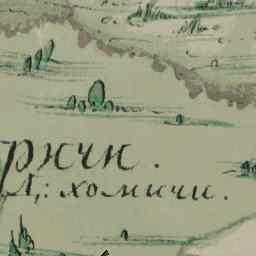 ржчи.
Д,: хомичи.